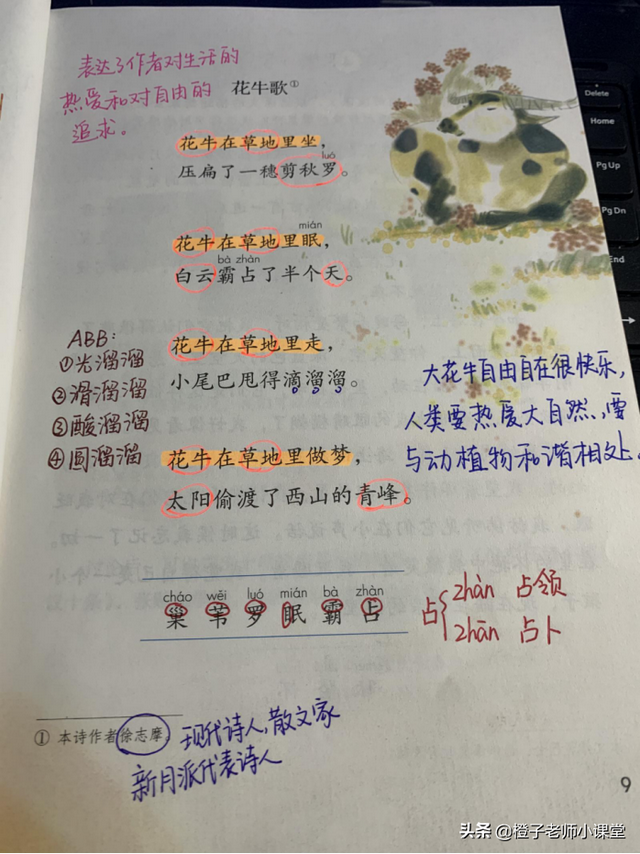 表达了作者对生活的
热爱和对自由的
追求。
花牛歌①
花牛在草地里坐，
luó
压扁了一穗剪秋罗。
mián
花牛在草地里眠，
bà zhàn
白云霸占了半个天。
花牛在草地里走，
小尾巴甩得滴溜溜。
花牛在草地里做梦，
太阳偷渡了西山的青峰。
ABB：
①光溜溜
②滑溜溜
③酸溜溜
④圆溜溜
大花牛自由自在很快乐，
人类要热爱大自然，要
与动植物和谐相处。
cháo wěi luó mián bà zhàn
巢 苇 罗 眠 霸 占
占
zhàn 占领
zhān 占卜
① 本诗作者徐志摩。
现代诗人，散文家
新月派代表诗人
9
Delete
Home
Pg Up
Pg Dn
End
头条 @橙子老师小课堂